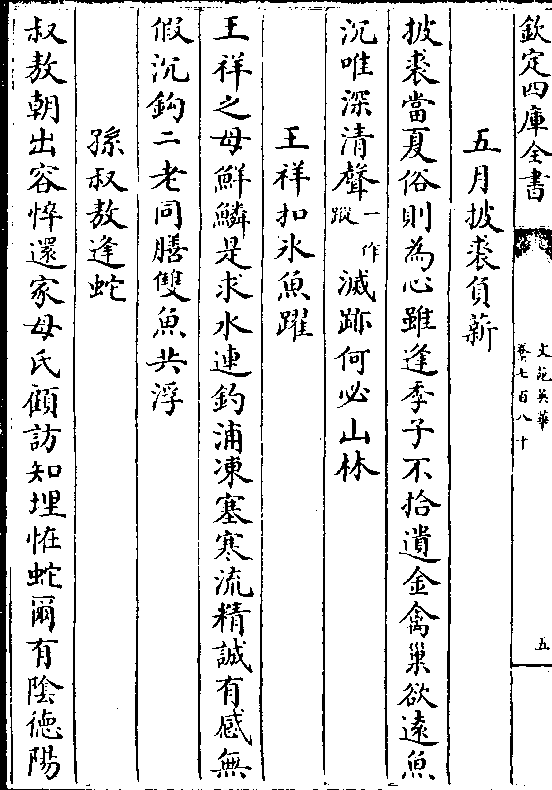 欽定四庫全書
文苑英華
卷七百八十
五
五月披裘負薪
披裘當夏俗則為心雖逢季子不拾遺金禽巢欲遠魚
沉唯深清聲一作蹤滅跡何必山林
王祥扣氷魚躍
王祥之母鮮鱗是求水連釣浦凍塞寒流精誠有感無
假沉鈎二老同膳雙魚共浮
孫叔敖逢蛇
叔敖朝出容悴還家母氏顧訪知埋恠蛇爾有陰德陽